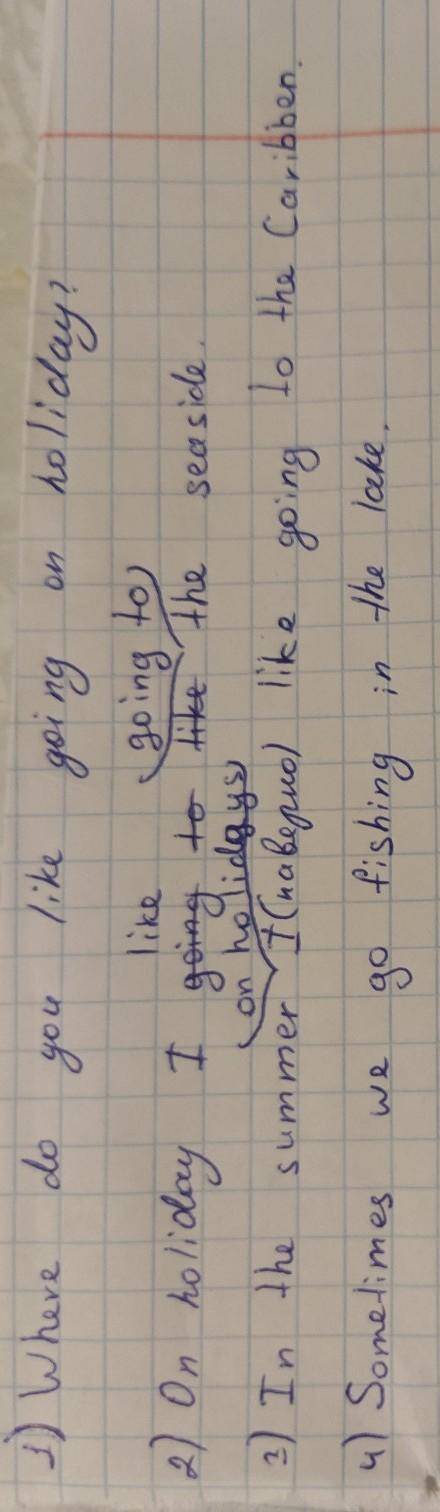 1) Where do you like going on holiday?
like (going to)
2) On holiday I going to like the seaside.
(on holidays)
3) In the summer I (наверно) like going to the Caribben.
4) Sometimes we go fishing in the lake.